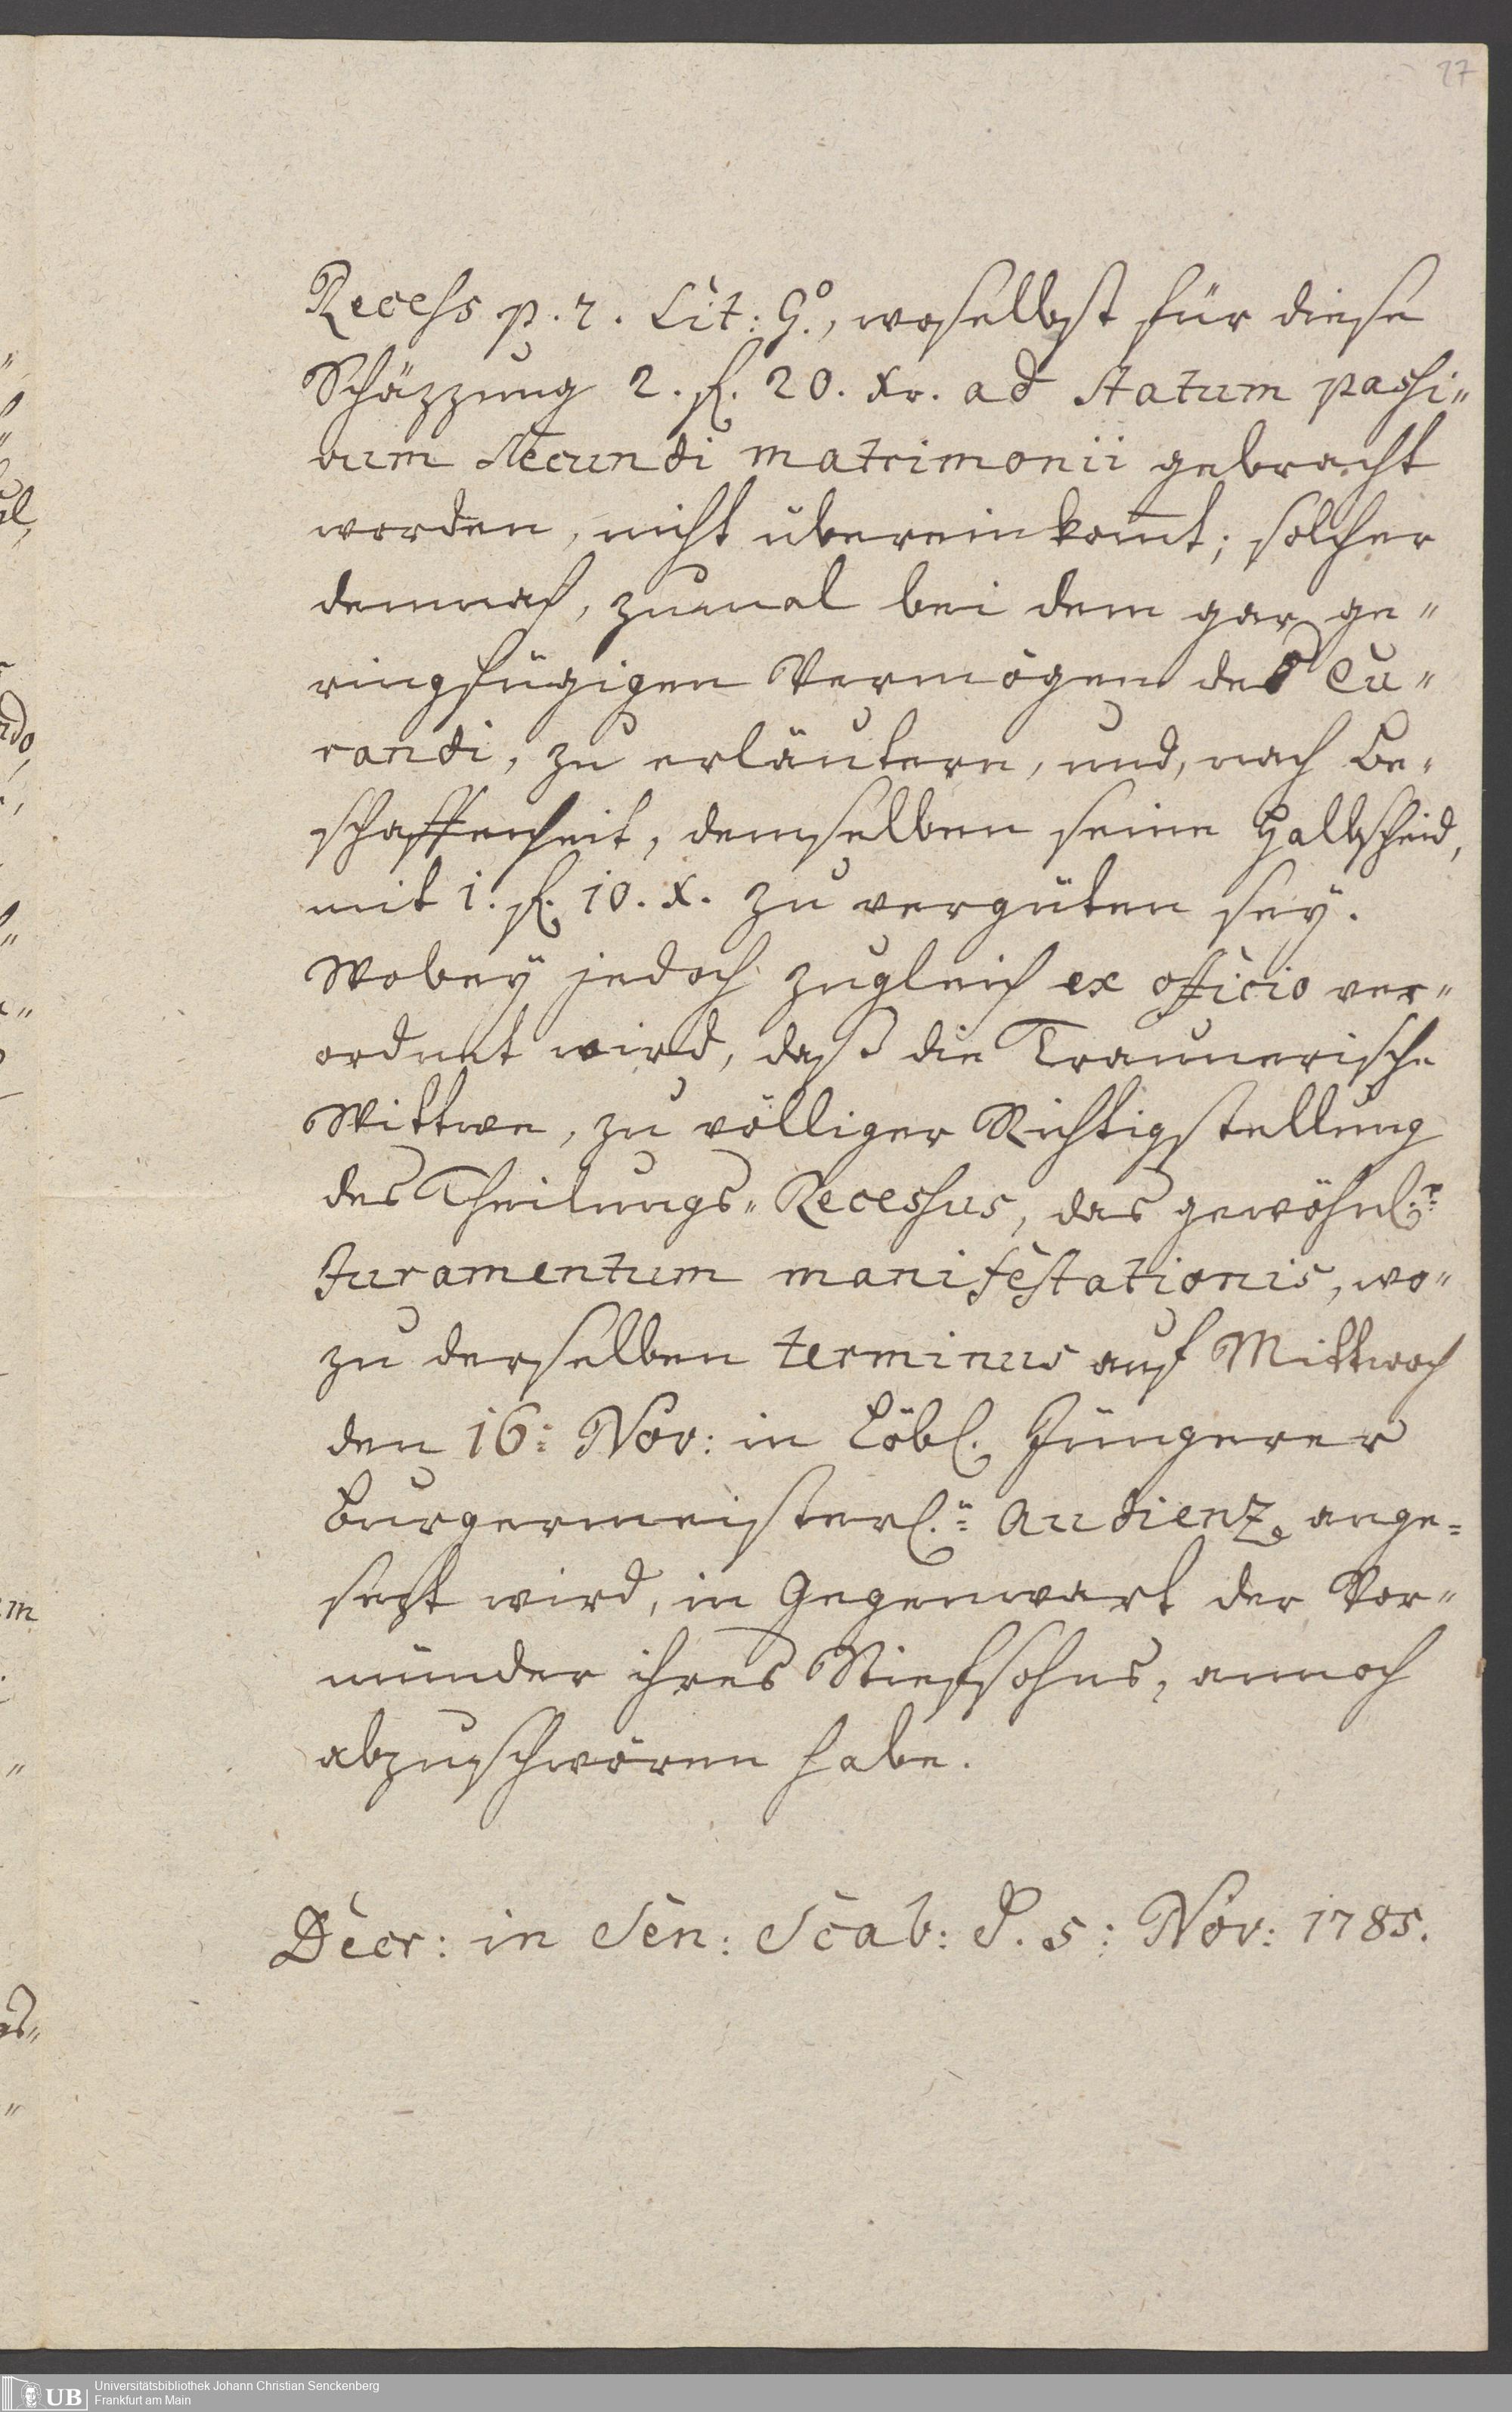 27
Recess p. 2. Lit: G.°, woselbst für diese
Schäzzung 2. f. 20. Xr. ad Statum passi"
vum Secundi matrimonii gebracht
worden, nicht übereinkom̅t; solcher
demnach, zumal bei dem gar ge"
ringfügigen Vermögen des Cu"
randi, zu erläutern, und, nach Be"
schaffenheit, demselben seine Halbscheid,
mit 1. f. 10. X. zu vergüten sey.
Wobey jedoch zugleich ex officio ver"
ordnet wird, daß die Traunerische
Wittwe, zu völliger Richtigstellung
des Theilungs" Recessus, das gewöhnl.e
Juramentum manifestationis, wo"
zu derselben terminus auf Mittwoch
den 16: Nov: in Löbl. Jüngerer
Burgermeisterl.n Audienz, ange=
sezt wird, in Gegenwart der Vor"
münder ihres Stiefsohns, annoch
abzuschwören habe.
Decr: in Sen: Scab: d. 5: Nov: 1785.
UB
Universitätsbibliothek Johann Christian Senckenberg
Frankfurt am Main